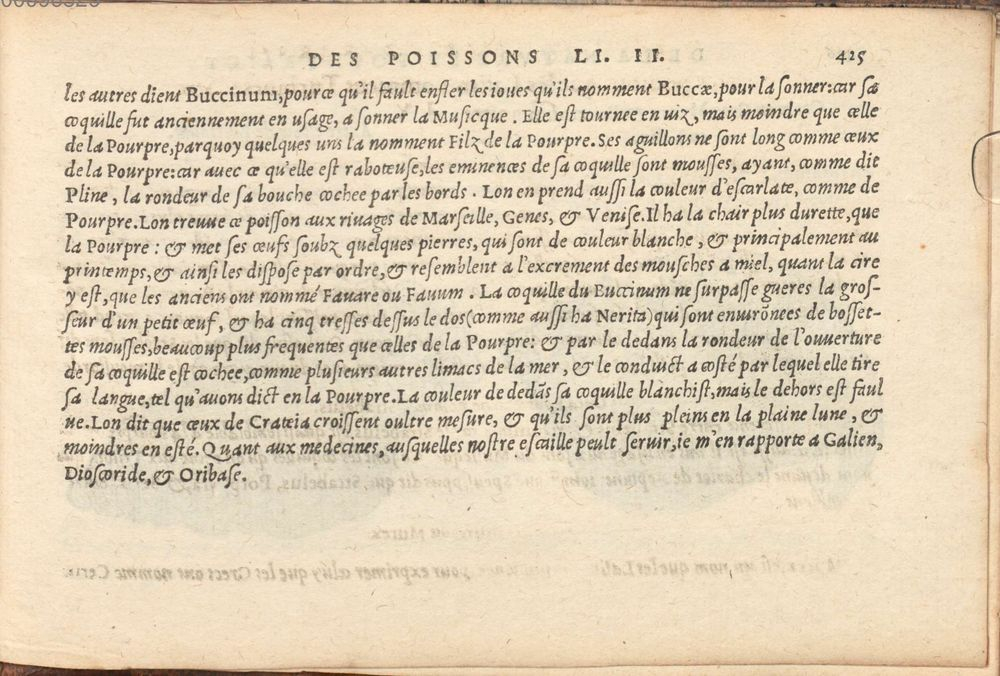 DES POISSONS LI. II. 425
les autres dient Buccinum, pource qu'il fault enfler les ioues qu'ils nomment Buccæ, pour la sonner: car sa
coquille fut anciennement en usage, a sonner la Musicque. Elle est tournee en uiz, mais moindre que celle
de la Pourpre, parquoy quelques uns la nomment Filz de la Pourpre. Ses aguillons ne sont long comme ceux
de la Pourpre: car avec ce qu'elle est raboteuse, les eminences de sa coquille sont mousses, ayant, comme dit
Pline, la rondeur de sa bouche cochee par les bords. Lon en prend aussi la couleur d'escarlate, comme de
Pourpre. Lon treuue ce poisson aux riuages de Marseille, Genes, & Venise. Il ha la chair plus durette, que
la Pourpre: & met ses œufs soubz quelques pierres, qui sont de couleur blanche, & principalement au
printemps, & ainsi les dispose par ordre, & resemblent a l'excrement des mousches a miel, quant la cire
y est, que les anciens ont nommé Fauare ou Fauum. La coquille du Buccinum ne surpasse gueres la gros-
seur d'un petit œuf, & ha cinq tresses dessus le dos (comme aussi ha Nerita) qui sont enuirōnees de bosset-
tes mousses, beaucoup plus frequentes que celles de la Pourpre: & par le dedans la rondeur de l'ouuerture
de sa coquille est cochee, comme plusieurs autres limacs de la mer, & le conduict a costé par lequel elle tire
sa langue, tel qu'avons dict en la Pourpre. La couleur de dedās sa coquille blanchist, mais le dehors est faul
ue. Lon dit que ceux de Crateia croissent oultre mesure, & qu'ils sont plus pleins en la plaine lune, &
moindres en esté. Quant aux medecines, ausquelles nostre escaille peult seruir, ie m'en rapporte a Galien,
Dioscoride, & Oribase.